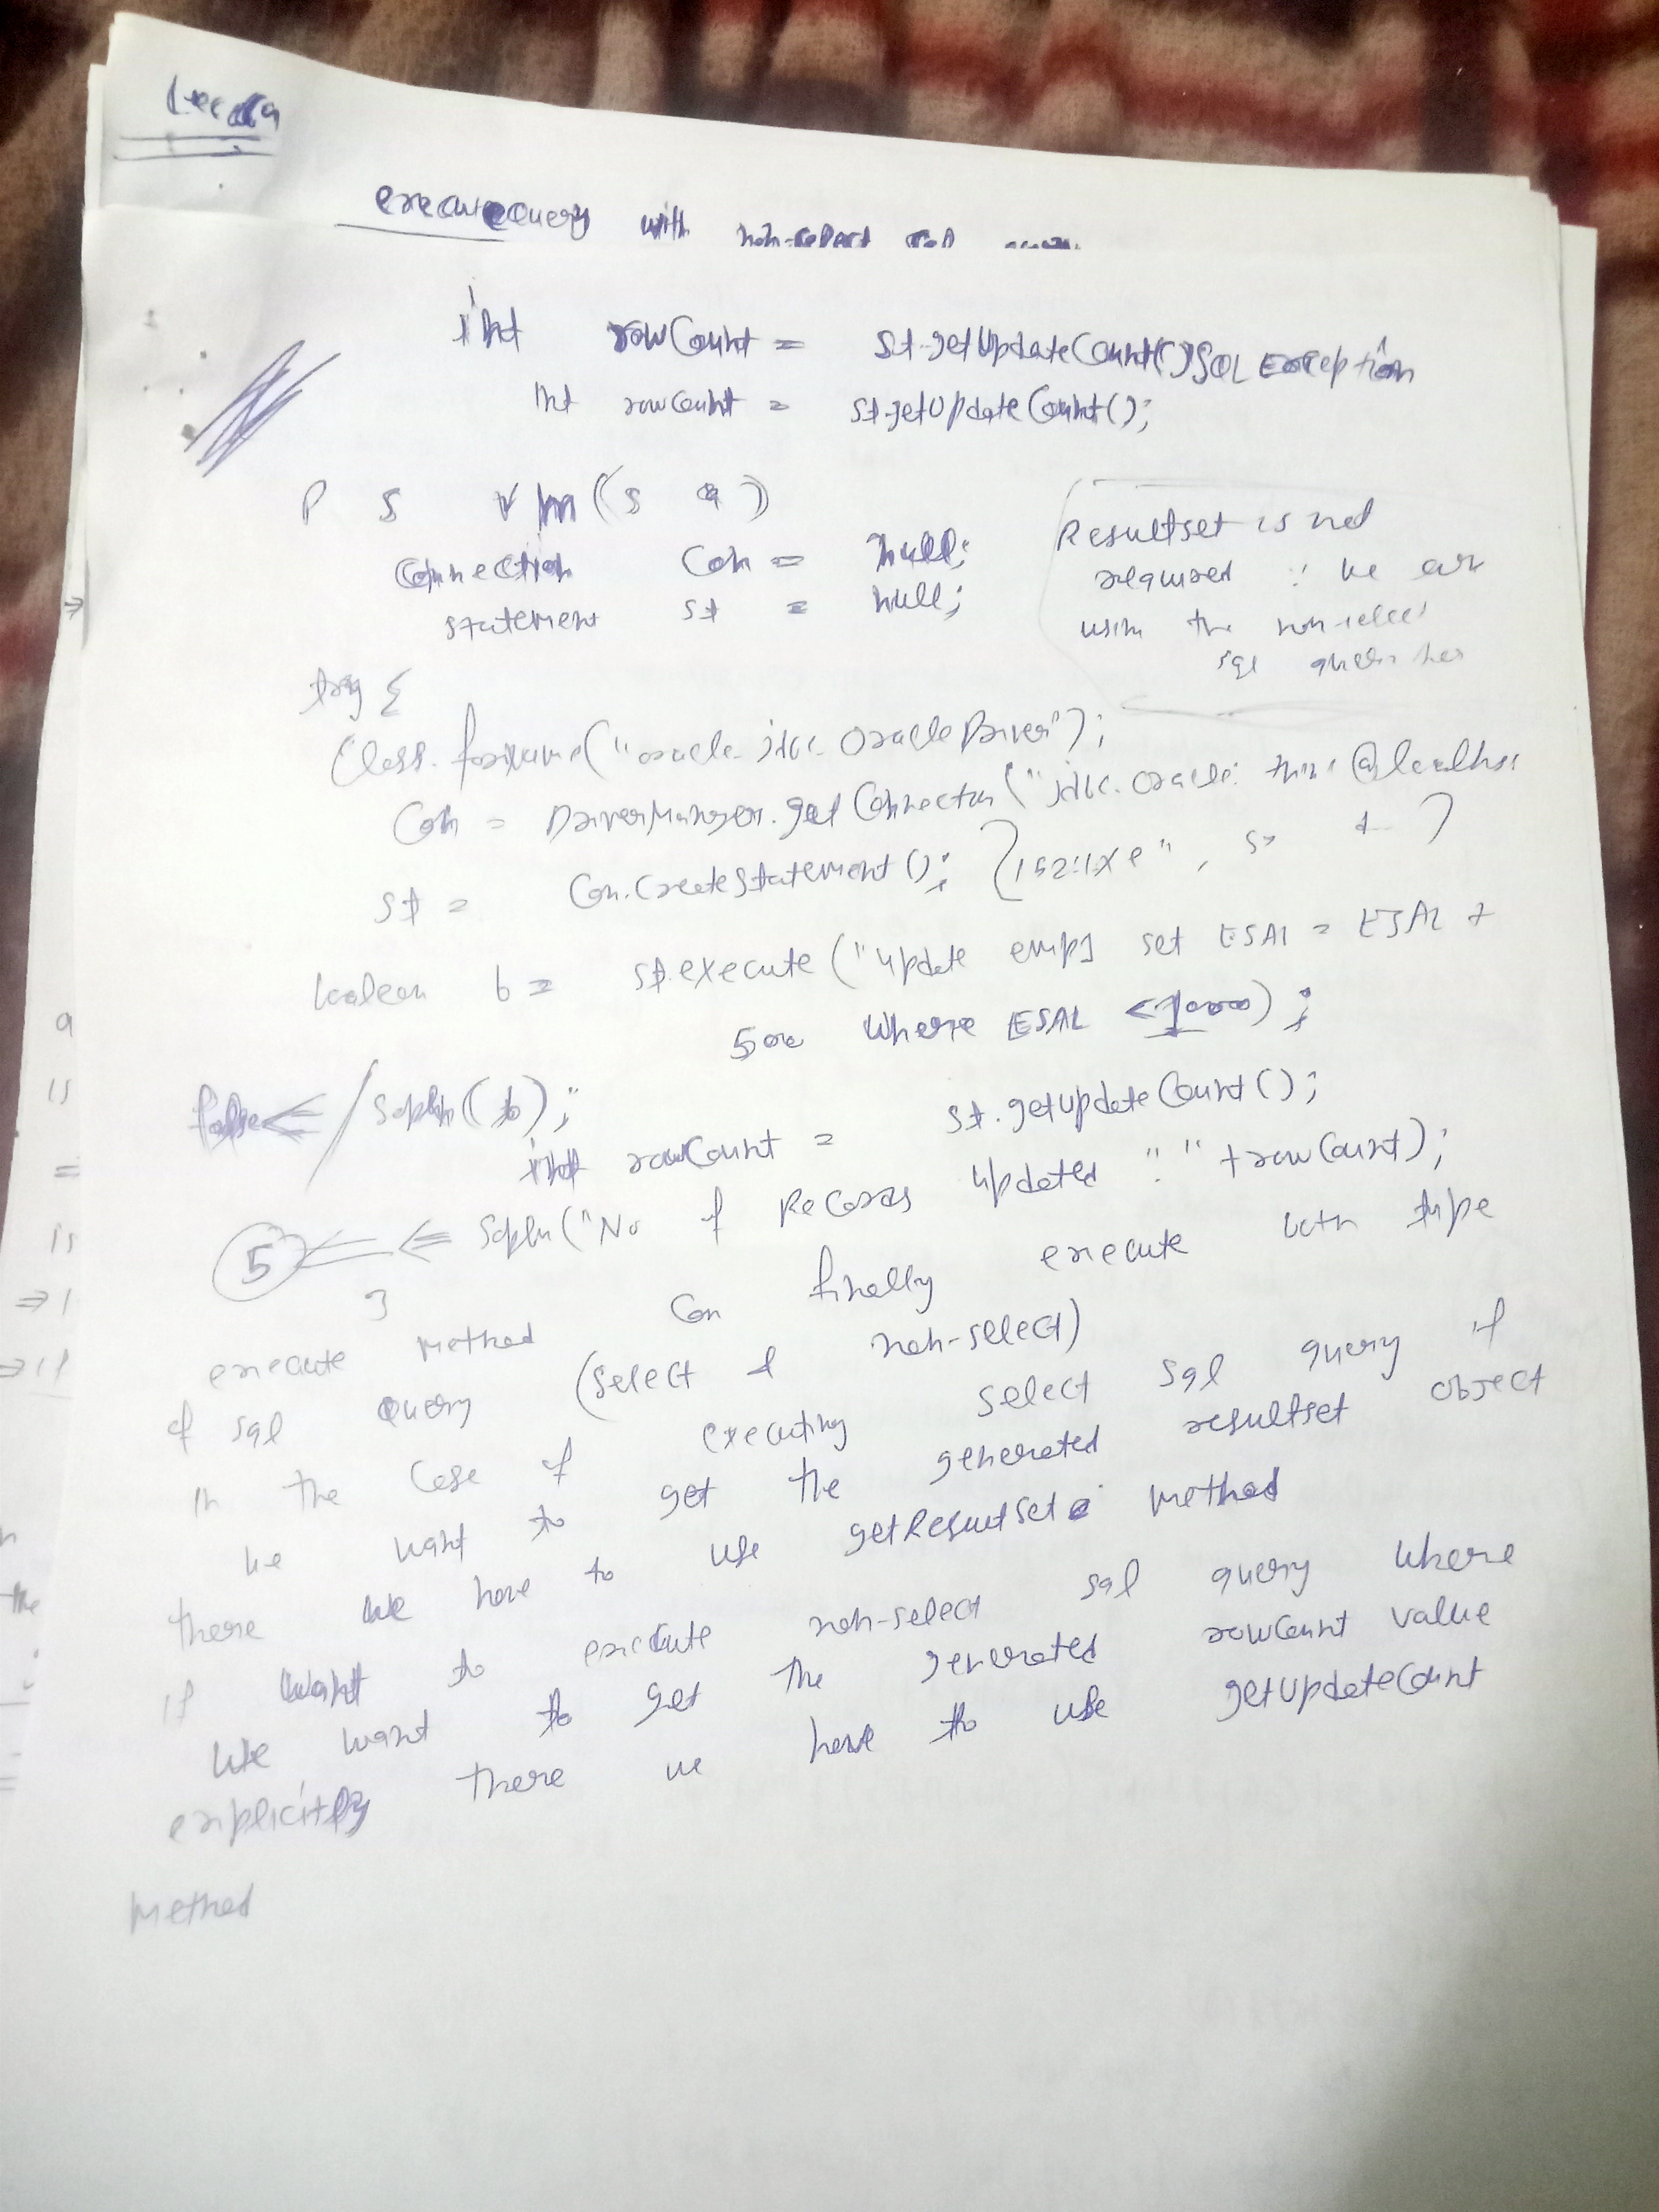 executequery with non-select
int rowCount = st.getUpdateCount() SQL Exception
int rowcount = st.getUpdateCount();
P S V m(S a)
Connection Con = null;
Statement st = null;
Resultset is not
required ∵ we are
using the non-select
sql
try {
Class.forName("oracle.jdbc.OracleDriver");
Con = DriverManager.getConnection("jdbc.oracle: thin: @localhost
1521:xe", s, t )
st = Con.CreateStatement();
boolean b = st.execute("update emp1 set ESAL = ESAL +
500 where ESAL < 1000);
false ⇐ / Sopln(b);
int rowCount = st.getUpdateCount();
5 ⇐ Sopln("No of Records updated : " + rowCount);
}
execute method can finally execute both type
of sql Query (Select & non-select)
in the case of executing select sql query if
we want to get the generated resultset object
there we have to use getResultSet method
if want to execute non-select sql query where
we want to get the generated rowcount value
explicitly there we have to use getUpdateCount
Method
a
is
=
is
⇒1
⇒if
the